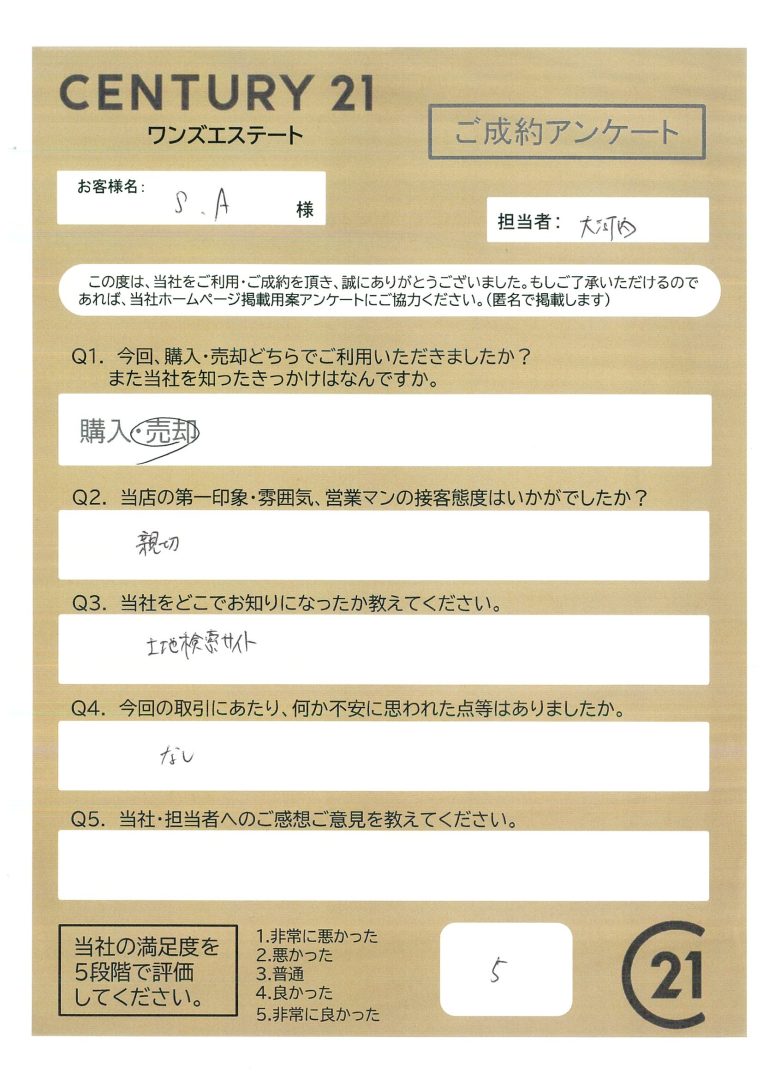 CENTURY 21
ワンズエステート
ご成約アンケート
お客様名:
S.A 様
担当者: 大河内
この度は、当社をご利用・ご成約を頂き、誠にありがとうございました。もしご了承いただけるので
あれば、当社ホームページ掲載用案アンケートにご協力ください。(匿名で掲載します)
Q1. 今回、購入・売却どちらでご利用いただきましたか?
また当社を知ったきっかけはなんですか。
購入・売却
Q2. 当店の第一印象・雰囲気、営業マンの接客態度はいかがでしたか?
親切
Q3. 当社をどこでお知りになったか教えてください。
土地検索サイト
Q4. 今回の取引にあたり、何か不安に思われた点等はありましたか。
なし
Q5. 当社・担当者へのご感想ご意見を教えてください。
当社の満足度を
5段階で評価
してください。
1.非常に悪かった
2.悪かった
3.普通
4.良かった
5.非常に良かった
5
C21